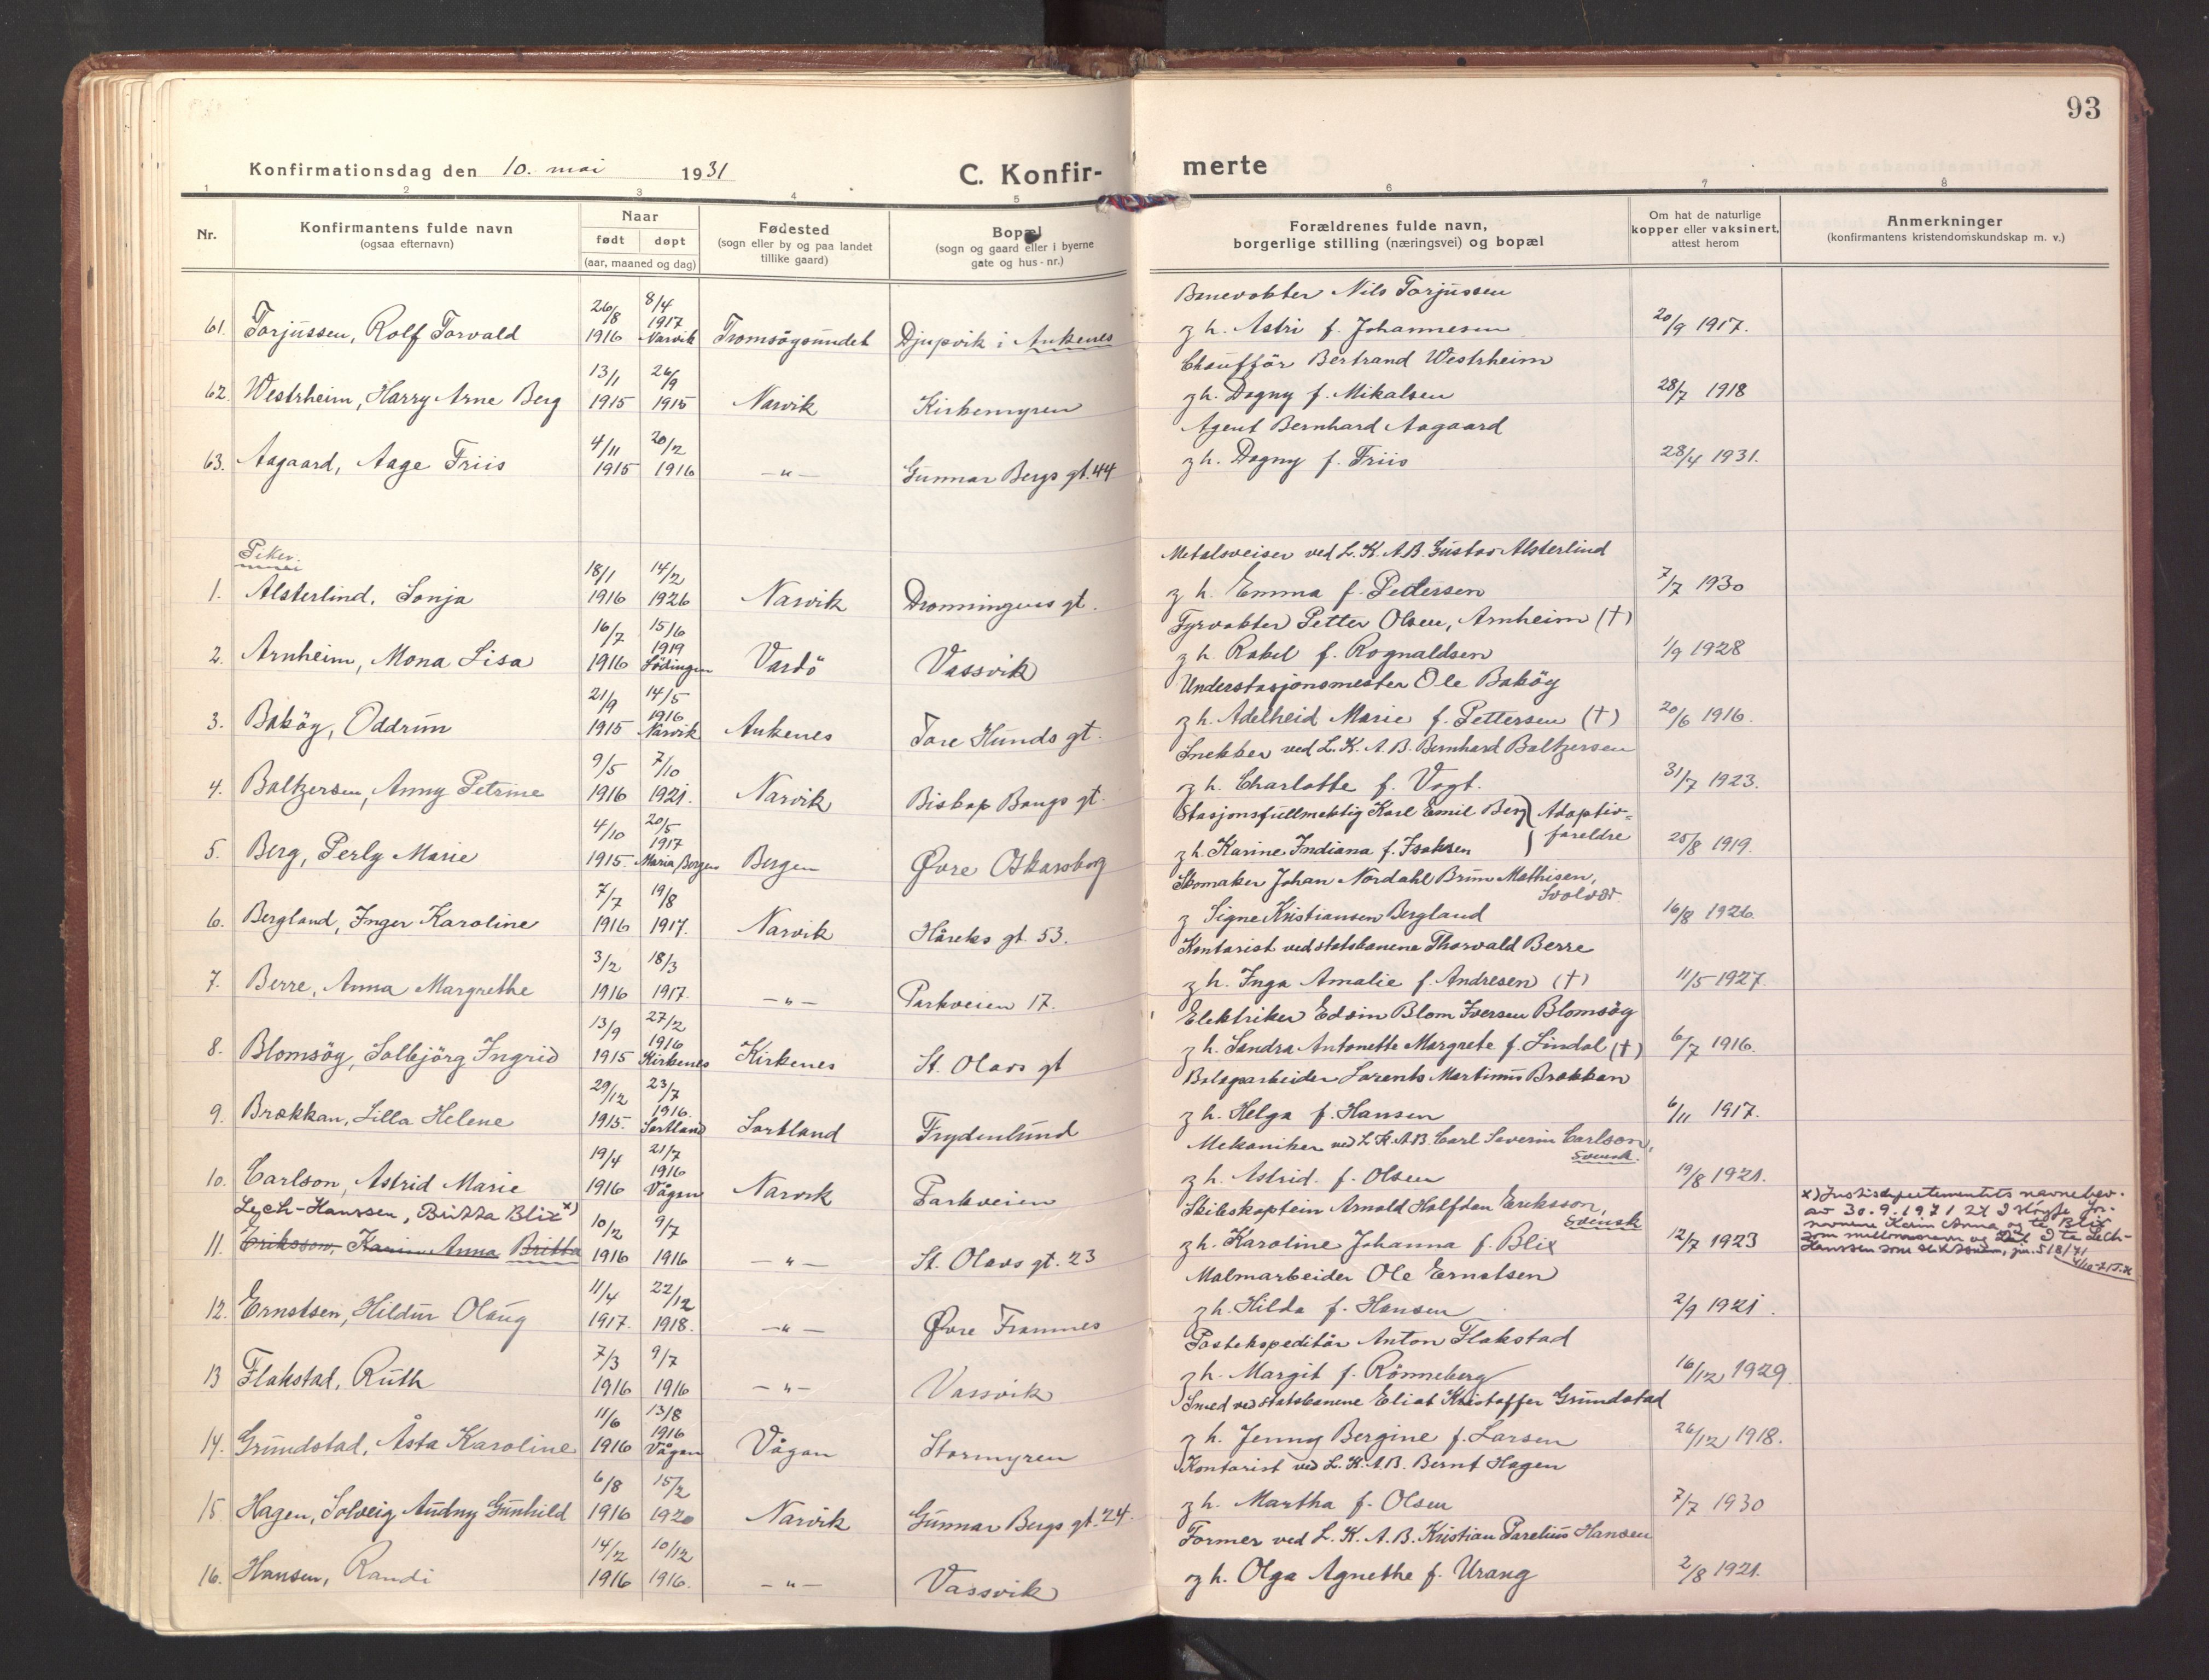 93
Konfirmationsdag den 10. mai 1931
C. Konfir-
merte
1 2 3 4 5 6 7 8
Nr.
Konfirmantens fulde navn
(ogsaa efternavn)
Naar
født døpt
(aar, maaned og dag)
Fødested
(sogn eller by og paa landet
tillike gaard)
Bopæl
(sogn og gaard eller i byerne
gate og hus-nr.)
Forældrenes fulde navn,
borgerlige stilling (næringsvei) og bopæl
Om hat de naturlige
kopper eller vaksinert,
attest herom
Anmerkninger
(konfirmantens kristendomskundskap m. v.)
Banevokter Nils Torjussen
61. Torjussen, Rolf Torvald 26/8 1916 8/4 1917 Narvik Tromsøysundet Djupvik i Ankenes
og h. Astri f. Johannesen 20/9 1917.
Chauffør Bertrand Westrheim
62. Westrheim, Harry Arne Berg 13/1 1915 26/9 1915 Narvik Kirkemyren
og h. Dagny f. Mikalsen 28/7 1918
Agent Bernhard Aagaard
63. Aagaard, Aage Friis 4/11 1915 20/2 1916 —"— Gunnar Bergs gt. 44
og h. Dagny f. Friis 28/4 1931.
Piker
Metalsveiser ved L.K.A.B. Gustav Alsterlind
1. Alsterlind, Sonja 18/1 1916 14/2 1926 Narvik Dronningens gt.
og h. Emma f. Pettersen 7/7 1930
Fyrvokter Petter Olsen, Arnheim (†)
2. Arnheim, Mona Lisa 16/7 1916 15/6 1919 Lödingen Vardö Vassvik
og h. Rakel f. Rognaldsen 1/9 1928
Understasjonsmester Ole Bakøy
3. Bakøy, Oddrun 21/9 1915 14/5 1916 Narvik Ankenes Tore Hunds gt.
og h. Adelheid Marie f. Pettersen (†) 20/6 1916.
Snekker ved L.K.A.B. Bernhard Baltzersen
4. Baltzersen, Anny Petrine 9/5 1916 7/10 1921. Narvik Biskop Bangs gt.
og h. Charlotte f. Vogt. 31/7 1923.
Stasjonsfullmektig Karl Emil Berg } Adoptiv-
5. Berg, Perly Marie 4/10 1915. 20/5 1917 Maria, Bergen Bergen Øvre Oskarsborg
og h. Karine Indiana f. Isaksen } foreldre 25/8 1919.
Skomaker Johan Nordahl Brun Mathisen,
Svolvær.
6. Bergland, Inger Karoline 7/7 1916 19/8 1917. Narvik Håreks gt. 53.
og Signe Kristiansen Bergland 16/8 1926.
Kontorist ved statsbanene Thorvald Berre
7. Berre, Anna Margrethe 3/2 1916 18/3 1917. —"— Parkveien 17.
og h. Inga Amalie f. Andresen (†) 11/5 1927.
Elektriker Edvin Blom Iversen Blomsøy
8. Blomsöy, Solbjörg Ingrid 13/9 1915 27/2 1916 Kirkenes Kirkenes St. Olavs gt
og h. Sandra Antonette Margrete f. Lindal (†) 6/7 1916.
Bolagsarbeider Lorents Martinus Brækkan
9. Brækkan, Lilla Helene 29/12 1915. 23/7 1916. Sortland Sortland Frydenlund
og h. Helga f. Hansen 6/11 1917.
Mekaniker ved L.K.A.B. Carl Severin Carlson,
svensk.
10. Carlson, Astrid Marie 19/4 1916 21/7 1916 Vågan Narvik Parkveien
og h. Astrid f. Olsen 19/8 1921.
Lech-Hanssen, Britta Blix x)
Skibskaptein Arnold Halfdan Eriksson,
Svensk
11. Eriksson, Karin Anna Britta 10/2 1916 9/7 1916 —"— St. Olavs gt. 23
og h. Karoline Johanna f. Blix 12/7 1923
x) Justisdepartementets navnebev.
av 30.9.1971 til å sløyfe for-
navnene Karin Anna og ta Blix
som mellomnavn og til å ta Lech-
Hanssen som slektsnavn, jnr. 518/71
Malmarbeider Ole Ernstsen
12. Ernstsen, Hildur Olaug 11/4 1917. 22/12 1918. —"— Øvre Framnes
og h. Hilda f. Hansen 2/9 1921.
Postekspeditör Anton Flakstad
13 Flakstad, Ruth 7/3 1916 9/7 1916 —"— Vassvik
og h. Margit f. Rönneberg 16/12 1929.
Smed ved statsbanene Eliot Kristoffer Grundstad
14. Grundstad, Åsta Karoline 11/6 1916 13/8 1916 Vågan Vågan Stormyren
og h. Jenny Bergine f. Larsen 26/12 1918.
Kontorist ved L.K.A.B. Bernt Hagen
15. Hagen, Solveig Audny Gunhild 6/8 1916 15/2 1920 Narvik Gunnar Bergs gt. 24.
og h. Martha f. Olsen 7/7 1930
Former ved L.K.A.B. Kristian Parelius Hansen
16. Hansen, Randi 14/2 1916 10/12 1916. —"— Vassvik
og h. Olga Agnethe f. Urang 2/8 1921.